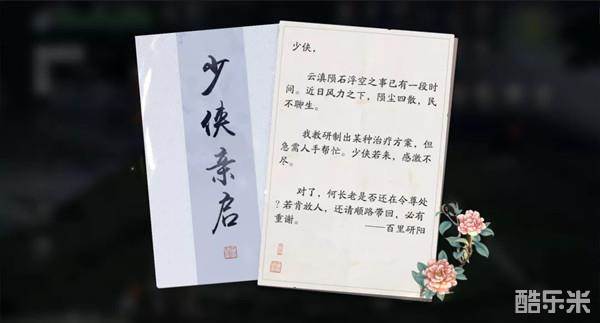 少侠亲启
少侠，
云滇陨石浮空之事已有一段时
间。近日风力之下，陨尘四散，民
不聊生。
我教研制出某种治疗方案，但
急需人手帮忙。少侠若来，感激不
尽。
对了，何长老是否还在令尊处
？若肯放人，还请顺路带回，必有
重谢。
——百里研阳
酷乐米